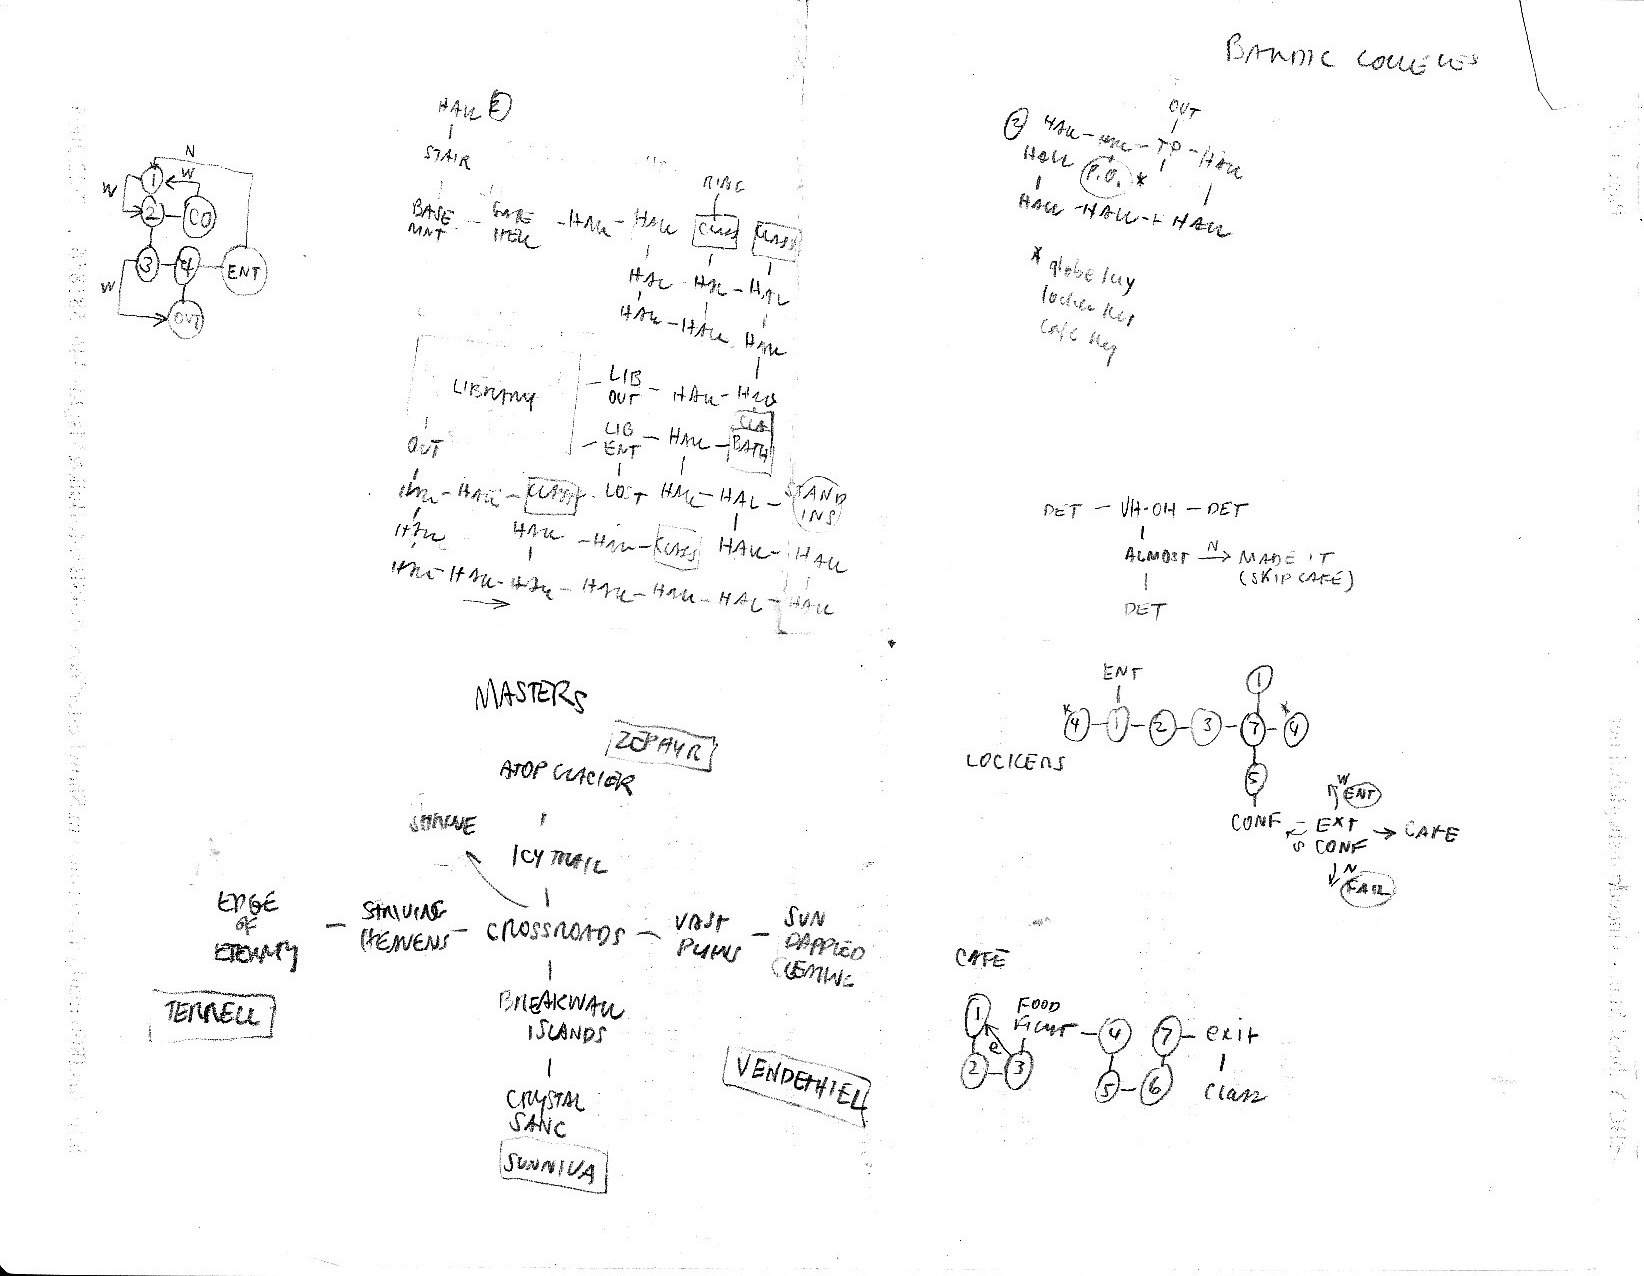 BARDIC COLLEGES
HALL 2
STAIR
N
W
1
W
2
CO
3
4
ENT
W
OUT
RING
BASE
MNT
GATE
HALL
HALL
CLASS
CLASS
HAL
HAL
HAL
HALL
HALL
HALL
LIBRARY
LIB
OUT
HALL
HALL
LIB
ENT
HALL
BATH
OUT
HALL
HALL
CLASS
LOST
HALL
HAL
STAND
INS
HALL
HALL
HALL
CLASS
HALL
HALL
HALL
HALL
HALL
HALL
HALL
HAL
HALL
OUT
2
HALL
HALL
TP
HALL
HALL
P.O. *
HALL
HALL
HALL
* globe key
locker key
cafe key
DET
UH-OH
DET
ALMOST
N
MADE IT
(SKIP CAFE)
DET
ENT
1
* 4
1
2
3
7
* 4
LOCKERS
5
CONF
W
ENT
EXT
CONF
S
CAFE
N
FAIL
MASTERS
ZEPHYR
ATOP GLACIER
SHRINE
ICY TRAIL
EDGE
OF
ETERNITY
STRIVING
HEAVENS
CROSSROADS
VAST
PLAINS
SUN
DAPPLED
CLEARING
TERRELL
BREAKWALL
ISLANDS
VENDETHIEL
CRYSTAL
SANC
SUNNIVA
CAFÉ
1
FOOD
FIGHT
4
7
exit
2
e
3
5
6
Class